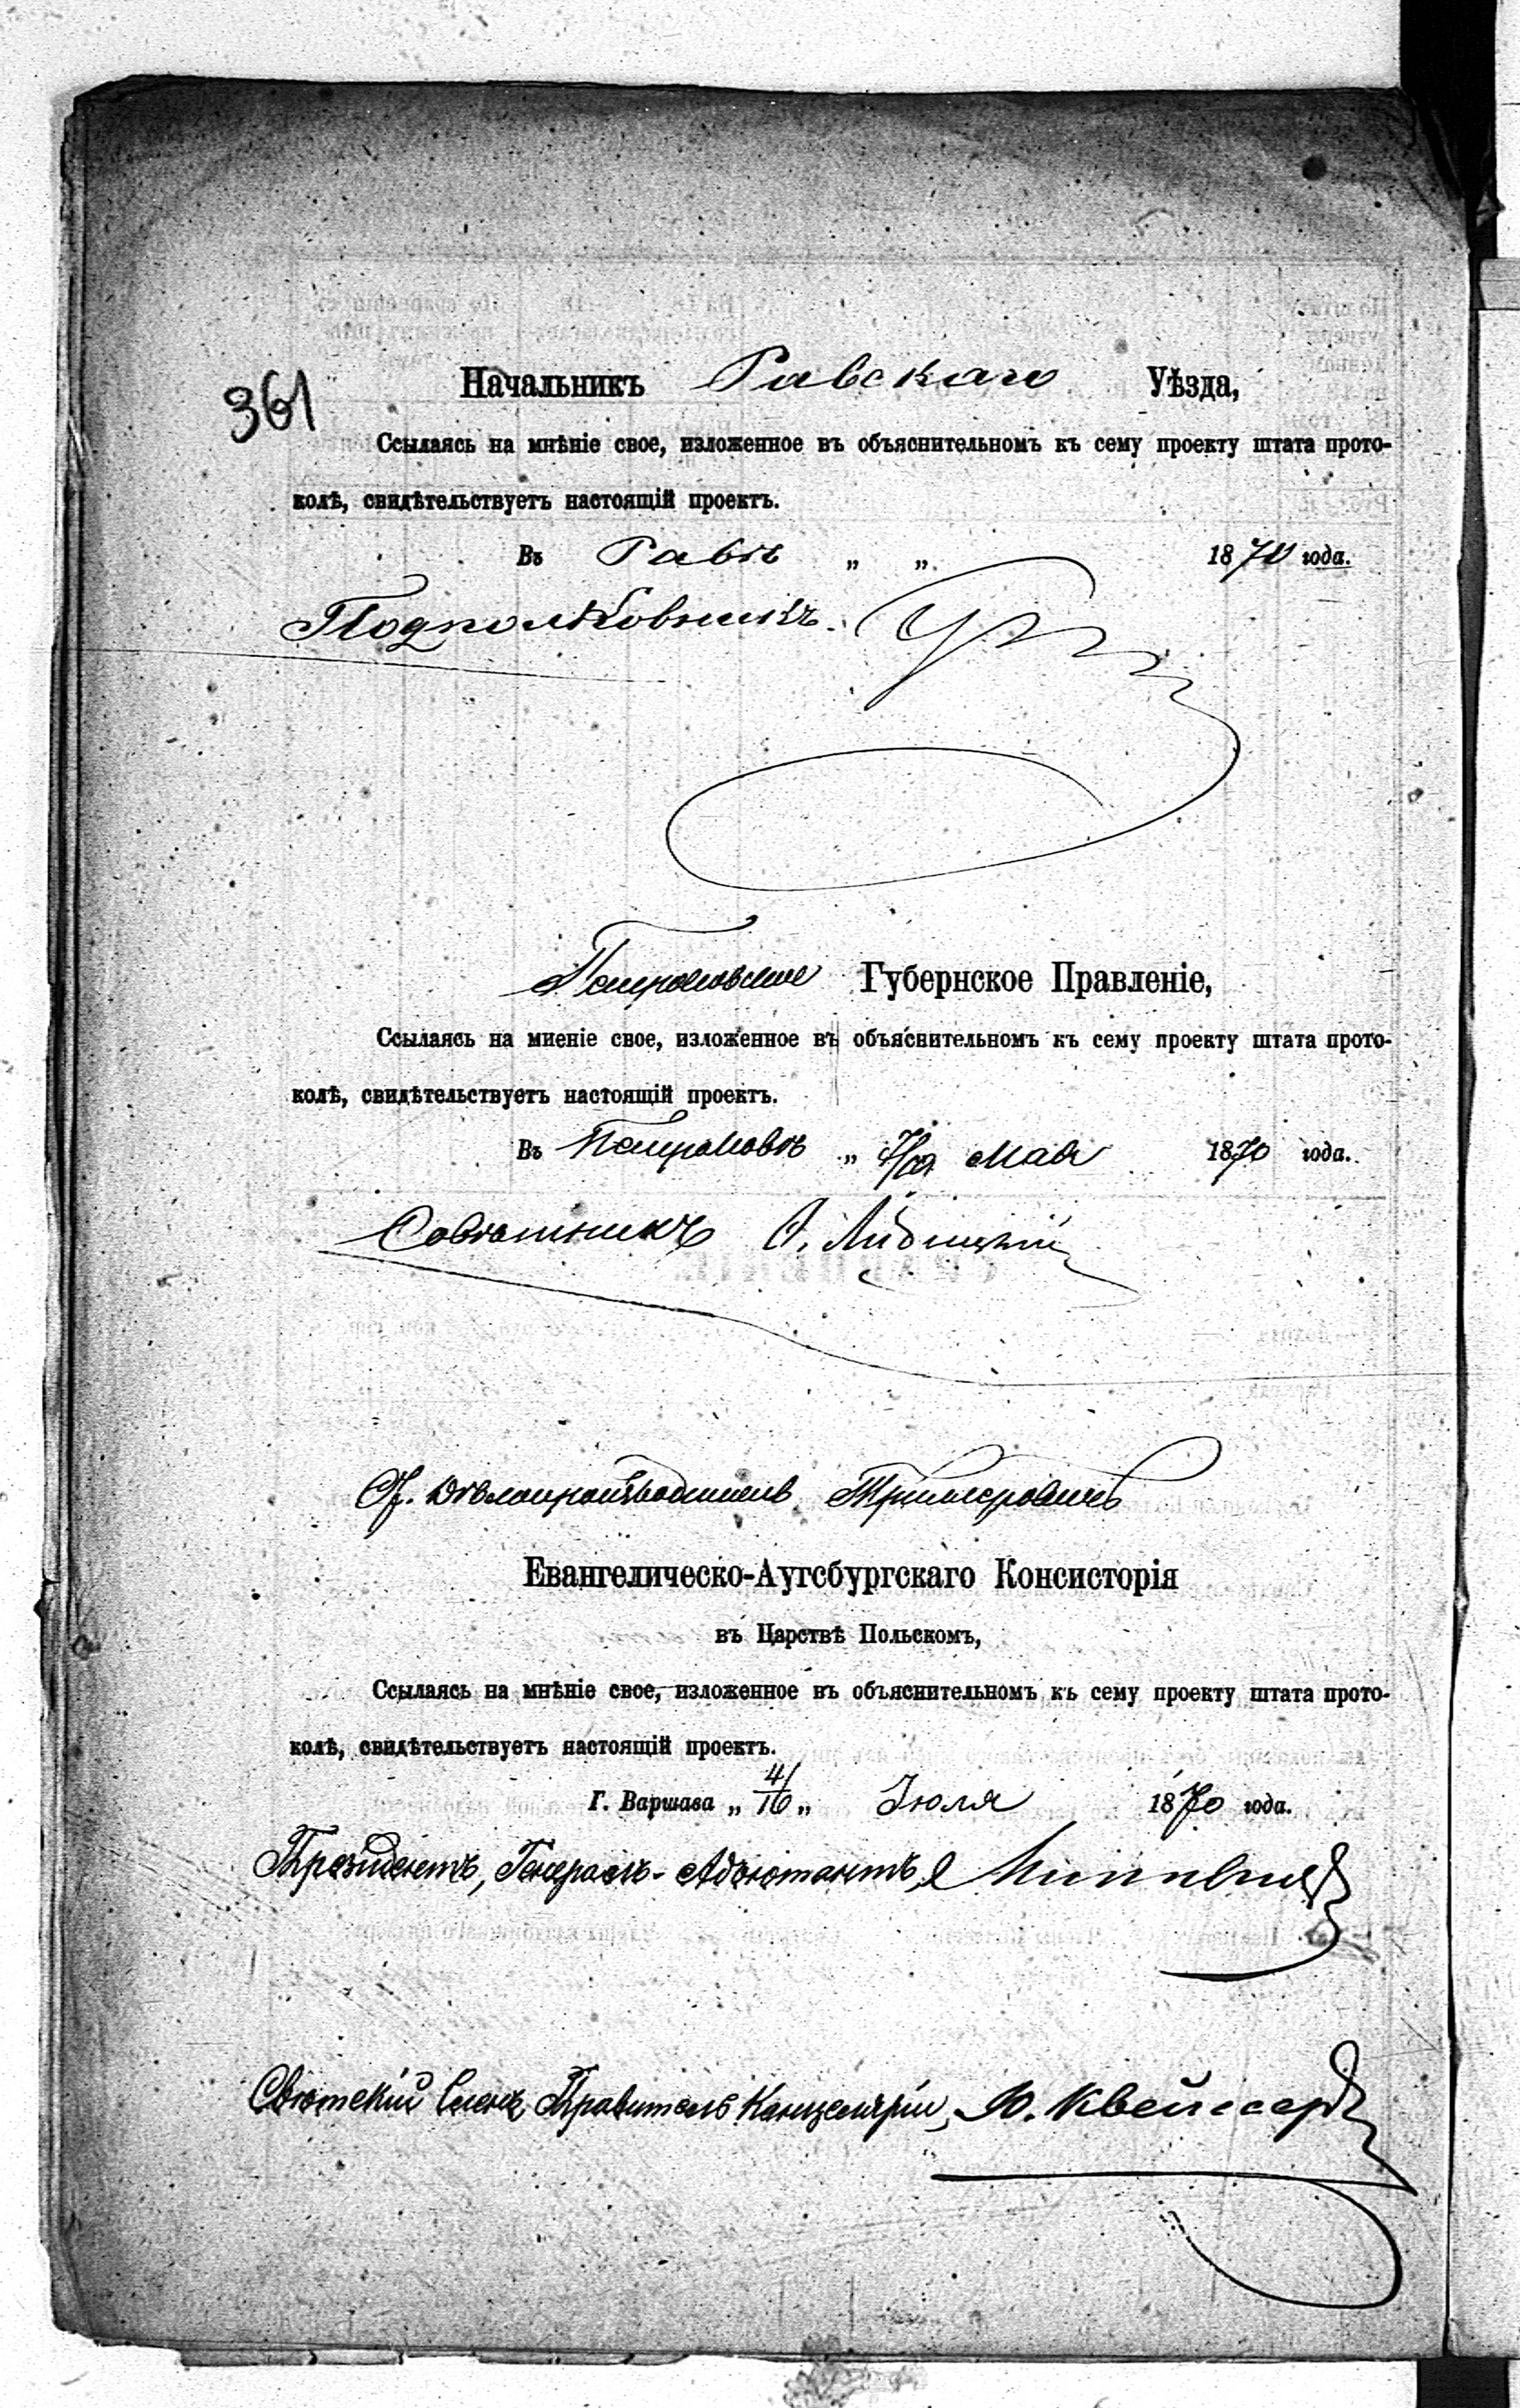 361
Начальникъ Равскаго Уѣзда,
Ссылаясь на мнѣніе свое, изложенное въ объяснительномъ къ сему проекту штата прото-
колѣ, свидѣтельствуетъ настоящій проектъ.
Въ Равѣ „ „ 1870 года.
Подполковникъ
Петроковское Губернское Правленіе,
Ссылаясь на миеніе свое, изложенное въ объяснительномъ къ сему проекту штата прото-
колѣ, свидѣтельствуетъ настоящій проектъ.
Въ Петроковѣ „ 7/19 Мая 1870 года.
Совѣтникъ
Дѣлопроизводитель
Евангелическо-Аугсбургскаго Консисторія
въ Царствѣ Польскомъ,
Ссылаясь на мнѣніе свое, изложенное въ объяснительномъ къ сему проекту штата прото-
колѣ, свидѣтельствуетъ настоящій проектъ.
Г. Варшава „ 4/16 „ Іюля 1870 года.
Президентъ, Генералъ-Адъютантъ,
Свѣтскій Членъ, Правитель Канцеляріи, Ю. Квейссеръ